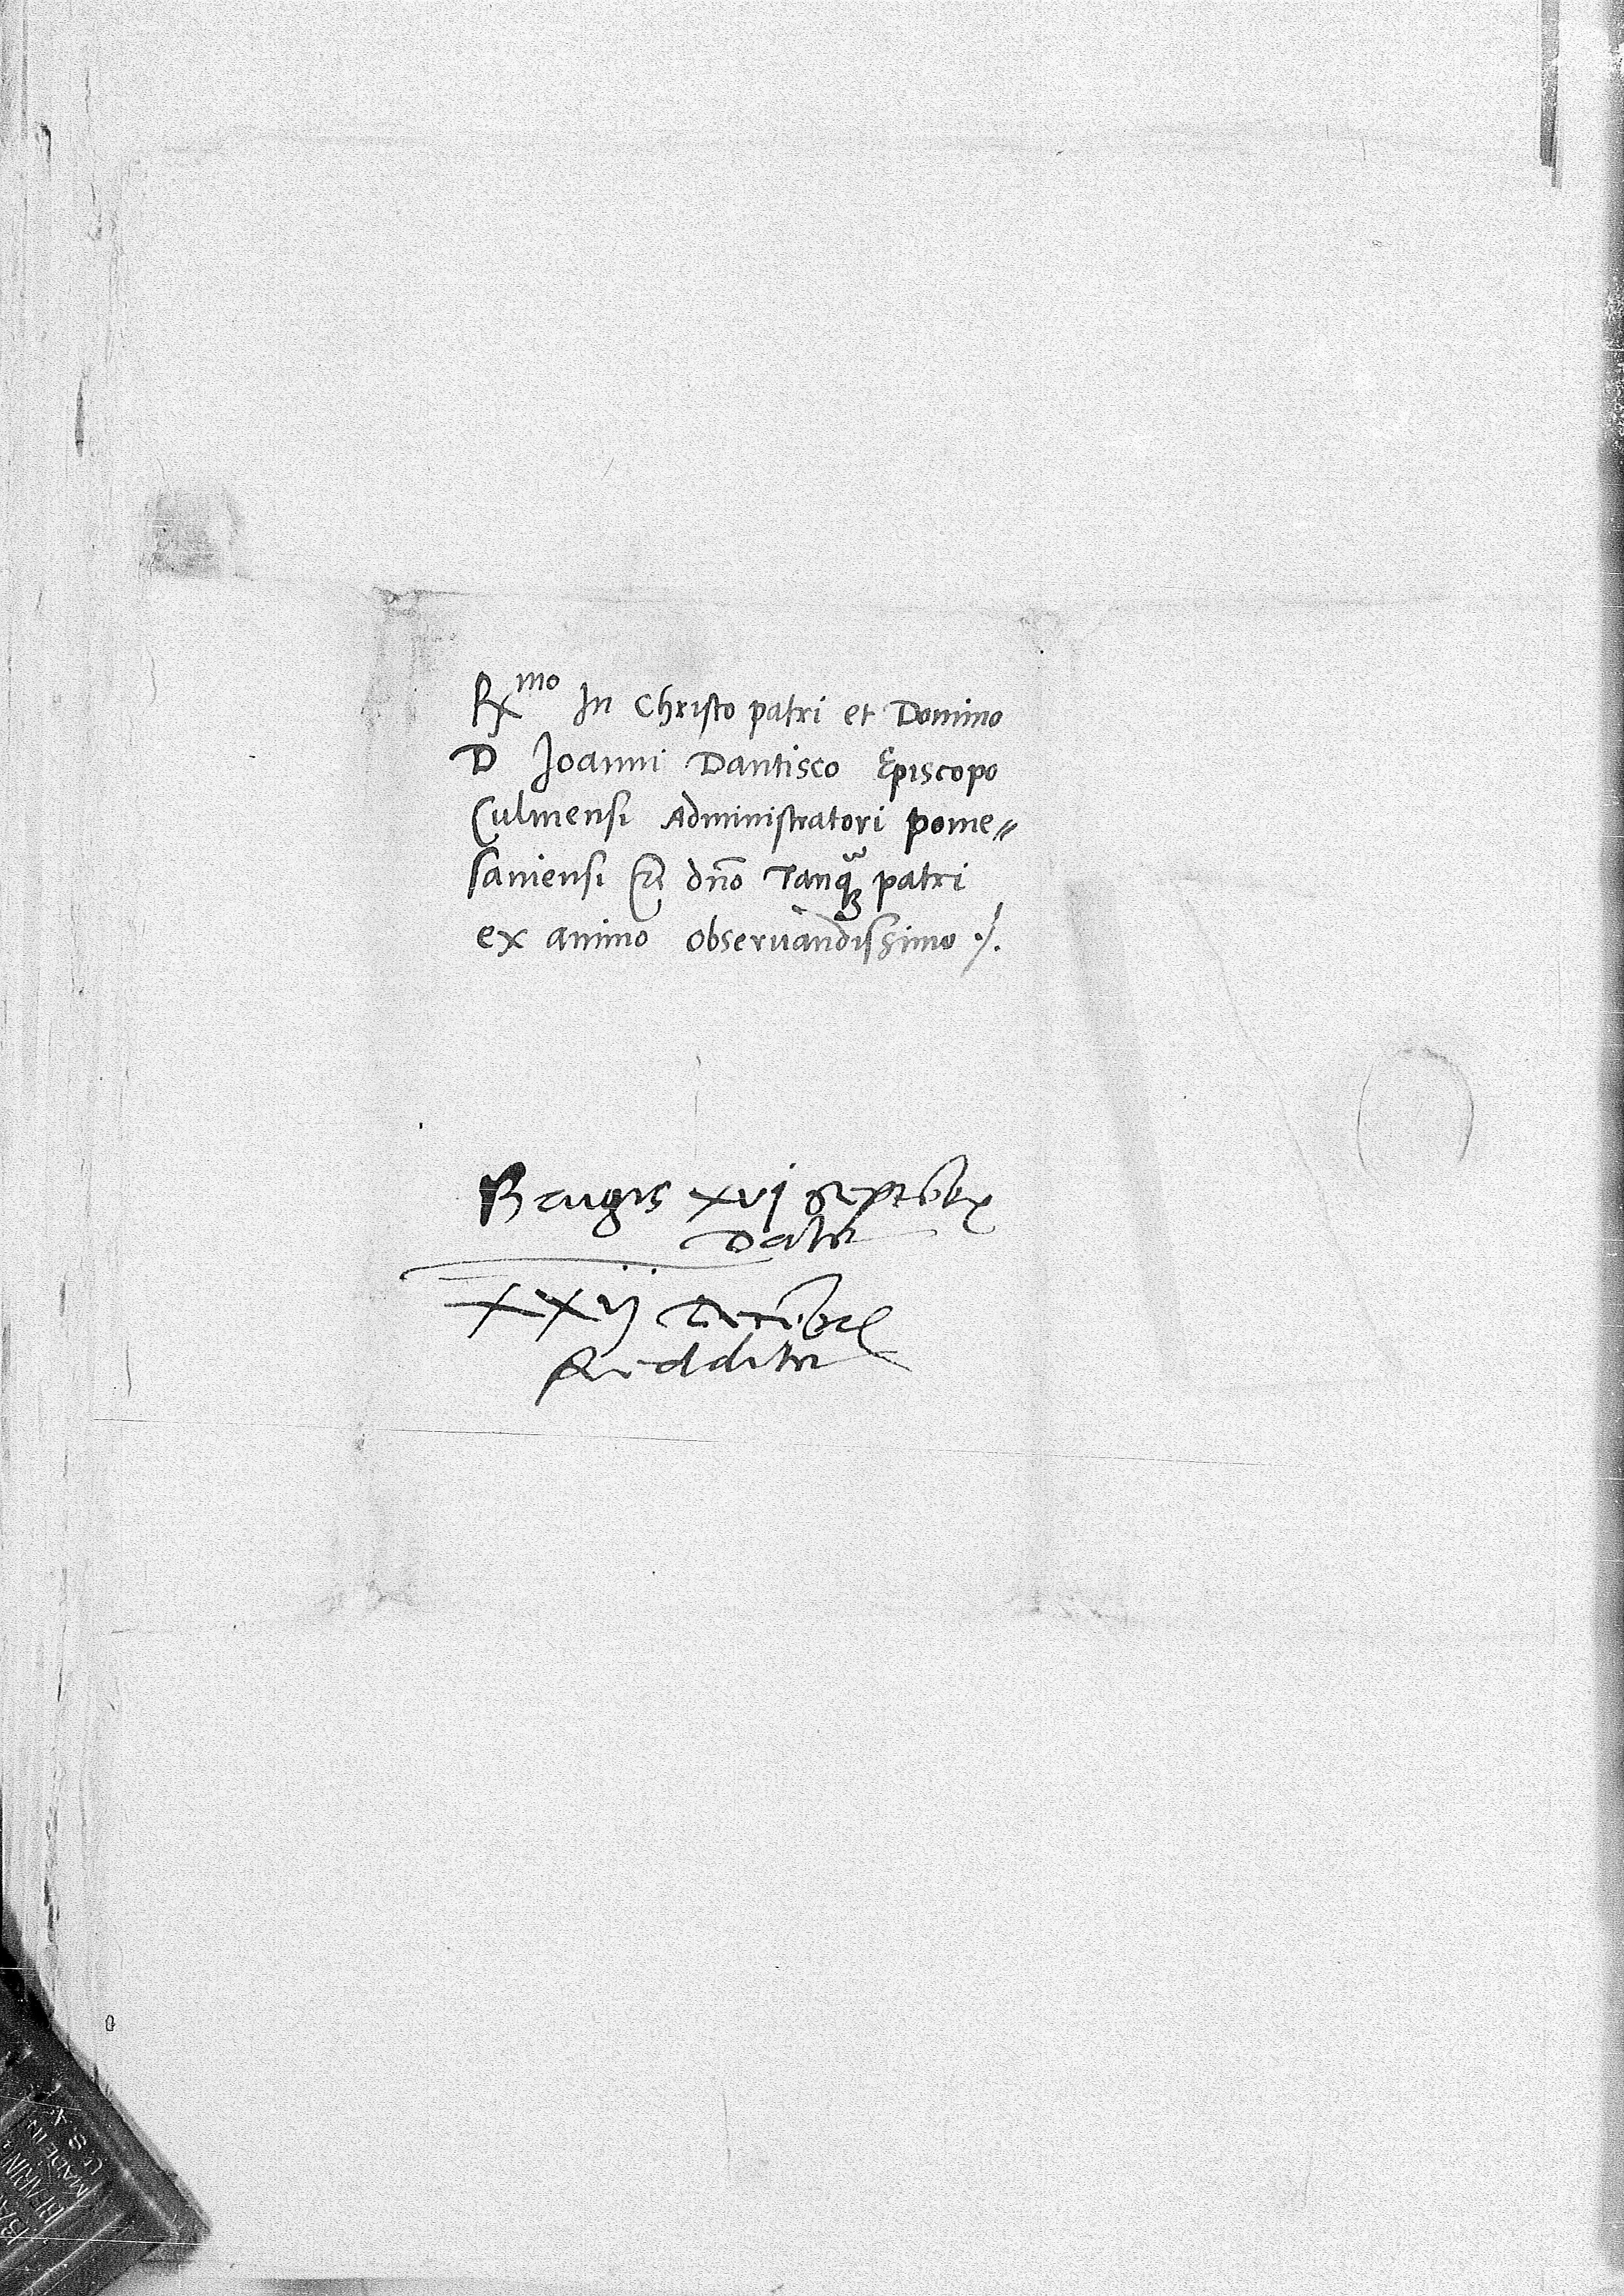 Rx^mo In Christo patri et Domino
D Joanni Dantisco Episcopo
Culmensi Administratori pome=
saniensi &c dño Tanq̃ patri
ex animo observandissimo ./.
Brugis xvj Septēbr
Datae
XXij Decēbris
Redditae
MADE IN
U.S.A.